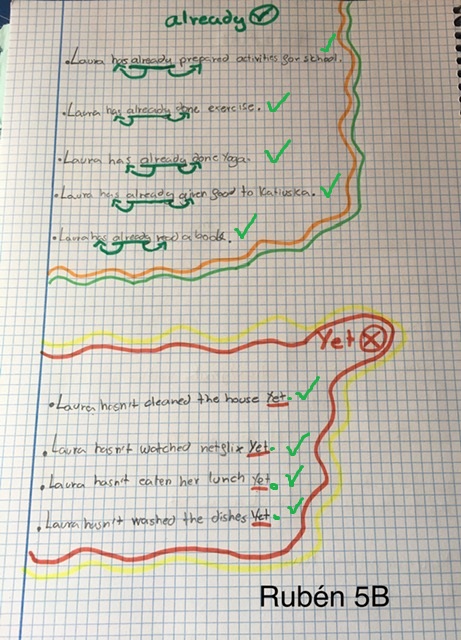 already
• Laura has already prepared activities for school.
• Laura has already done exercise.
• Laura has already done Yoga.
• Laura has already given food to Katiuska.
• Laura has already read a book.
Yet
• Laura hasn't cleaned the house Yet.
• Laura hasn't watched netflix Yet.
• Laura hasn't eaten her lunch Yet.
• Laura hasn't washed the dishes Yet.
Rubén 5B